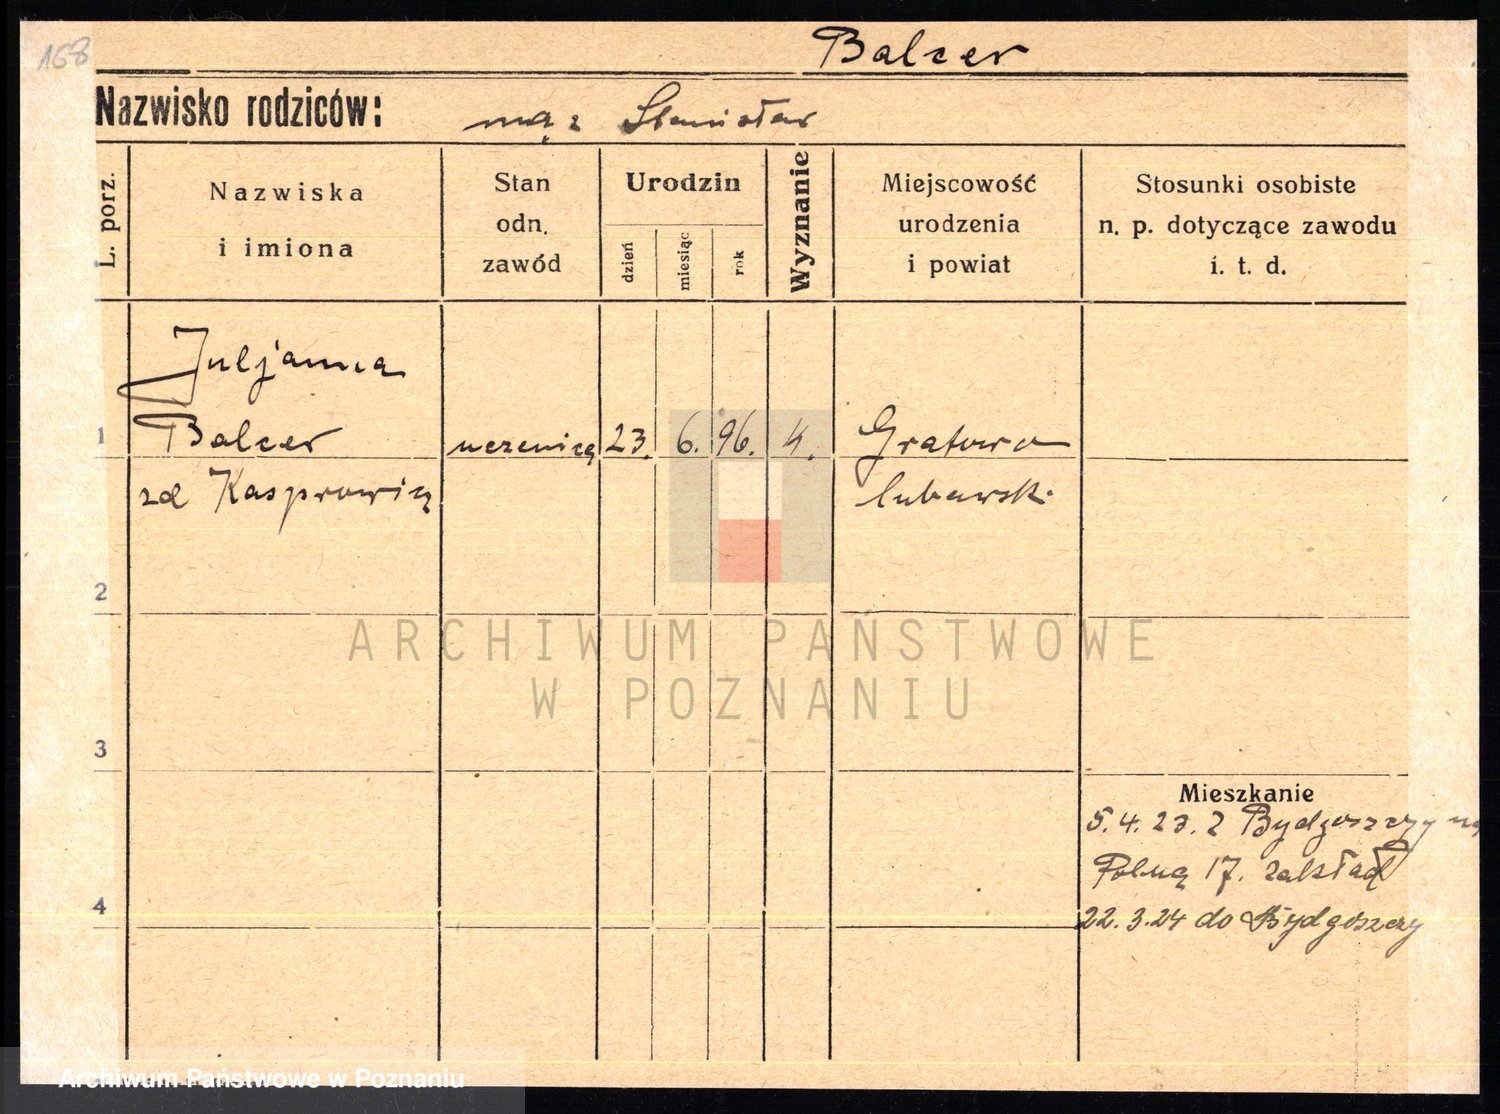 168
Balcer
Nazwisko rodziców: mąż Stanisław
L. porz.
Nazwiska
i imiona
Stan
odn.
zawód
Urodzin
dzień
miesiąc
rok
Wyznanie
Miejscowość
urodzenia
i powiat
Stosunki osobiste
n. p. dotyczące zawodu
i. t. d.
Juljanna
1 Balcer uczenica 23. 6. 96. k. Gratowo
zd Kasprowicz lubawski
2
ARCHIWUM PAŃSTWOWE
W POZNANIU
3
Mieszkanie
5.4.23. z Bydgoszczy na
Polną 17. zakład
4
22.3.24 do Bydgoszczy
Archiwum Państwowe w Poznaniu